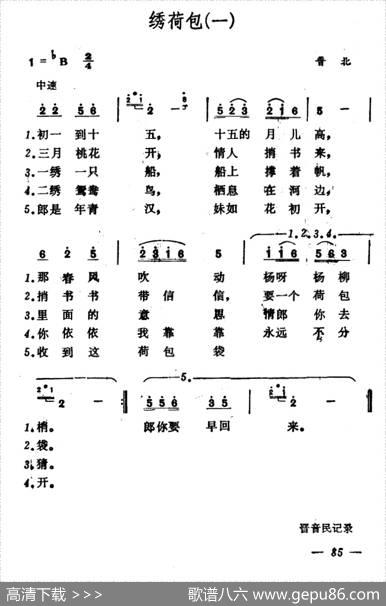 绣荷包(一)
1=♭B 2/4
晋北
中速
2 2 5 6 2 — 5 2 3 2 1 6 5 —
1.初一 到十 五, 十五的 月儿 高,
2.三月 桃花 开, 情人 捎书 来,
3.一绣 一只 船, 船上 撑着 帆,
4.二绣 鸳鸯 鸟, 栖息 在河 边,
5.郎是 年青 汉, 妹如 花初 开,
1.2.3.4.
6 2 5 2 3 1 6 5
1.那春风 吹 动 杨呀 杨柳
2.捎书书 带信 信, 要一个 荷包
3.里面的 意 思 情郎 你去
4.你依依 我靠 靠 永远 不分
5.收到这 荷包 袋
5.
2 — 5 5 6 3 5 5 2 —
1.梢。 郎你要 早回 来。
2.袋。
3.猜。
4.开。
晋音民记录
— 85 —
高清下载 >>>
歌谱八六 www.gepu86.com